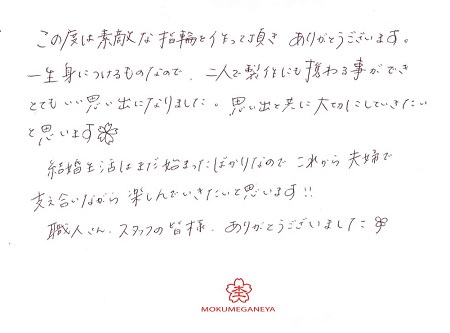 この度は素敵な指輪を作って頂き ありがとうございます。
一生身につけるものなので、二人で製作にも携わる事ができ
とてもいい思い出になりました。思い出と共に大切にしていきたい
と思います
結婚生活はまだ始まったばかりなので これから 夫婦で
支え合いながら 楽しんでいきたいと思います!!
職人さん、スタッフの皆様、ありがとうございました
MOKUMEGANEYA